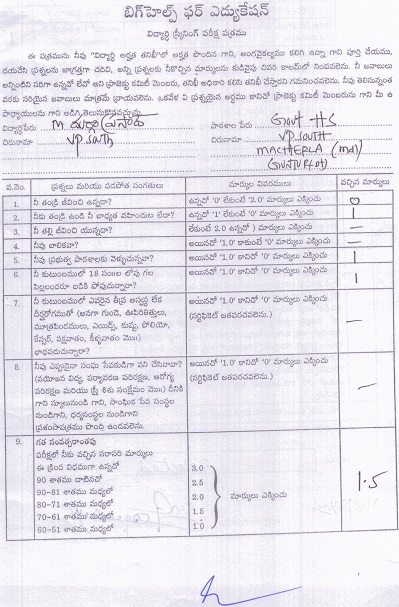 బిగ్‌హెల్ప్ ఫర్ ఎడ్యుకేషన్
విద్యార్థి స్క్రీనింగ్ పరీక్ష పత్రము
ఈ పత్రమును నీవు "విద్యార్థి అర్హత తనిఖీ"లో అర్హత పొందిన గాని, అంగవైకల్యము కలిగి ఉన్నా గాని పూర్తి చేయుము,
దయచేసి ప్రశ్నలను జాగ్రత్తగా చదివి, అన్ని ప్రశ్నలకు నీకొచ్చిన మార్కులను కుడివైపు చివరి కాలమ్‌లో నింపవలెను. నీ జవాబులు
అన్నింటిని సరిగా ఉన్నవో లేవో అని ప్రాజెక్టు కమిటీ మెంబరు, తనిఖీ అధికారి కలిసి తనిఖీ చేస్తారని గమనించవలెను. నీవు తెలిసినంత
వరకు సరియైన జవాబులు మాత్రమే వ్రాయవలెను. ఒకవేళ ఏ ప్రశ్నయైన అర్థము కానిచో ప్రాజెక్టు కమిటీ మెంబరును గాని మీ ఉ
పాధ్యాయులను గాని అడిగి తెలుసుకొనవచ్చును
విద్యార్థిపేరు : M దుర్గా ప్రసాద్ పాఠశాల పేరు : Govt HS
చిరునామా : VP South చిరునామా : VP SOUTH
MACHERLA (md)
GUNTUR(dt)
వ.నెం. ప్రశ్నలు మరియు పరపోత సంగతులు మార్కుల వివరములు వచ్చిన మార్కులు
1. నీ తండ్రి జీవించి ఉన్నాడా? ఉన్నచో '0' లేకుంటే '2.0' మార్కులు ఎక్కించు 0
2. నీకు తండ్రి ఉండి నీ బాధ్యత వహించుట లేదా? ఉన్నచో '1' లేకుంటే '0' మార్కులు ఎక్కించు —
3. నీ తల్లి జీవించి యున్నదా? లేకుంటే 2.0 ఉన్నచో ) మార్కులు ఎక్కించు —
4. నీవు బాలికవా? అయినచో '1.0' కాకుంటే '0' మార్కులు ఎక్కించు —
5. నీవు ప్రభుత్వ పాఠశాలకు వెళ్ళుచున్నవా? అయినచో '1.0' కానిచో '0' మార్కులు ఎక్కించు 1
6. నీ కుటుంబములో 18 సం॥ల లోపు గల అయినచో '1.0' కానిచో '0' మార్కులు ఎక్కించు 1
పిల్లలందరూ బడికి పోవుచున్నారా?
7. నీ కుటుంబములో ఎవరైన తీవ్ర అస్వస్థ లేక అయినచో '1.0' కానిచో '0' మార్కులు ఎక్కించు —
దీర్ఘరోగముతో (అనగా గుండె, ఊపిరితిత్తులు, (సర్టిఫికెట్ జతపరచవలెను.)
మూత్రపిండములు, ఎయిడ్స్, కుష్ఠు, పోలియో,
కేన్సర్, పక్షవాతం, కీళ్ళవాతం మొ॥)
బాధపడుచున్నారా?
8. నీవు ఎప్పుడైనా సంఘ సేవకుడిగా పని చేసినావా? అయినచో '1.0' కానిచో '0' మార్కులు ఎక్కించు —
(వయోజన విద్య, పర్యావరణ పరిరక్షణ, ఆరోగ్య (సర్టిఫికెట్ జతపరచవలెను.)
పరిరక్షణ మరియు స్త్రీ శిశు సంక్షేమం మొ॥) దీనికి
గాని స్కూలునుండి గాని, సాంఘిక సేవ సంస్థల
నుండిగాని, ధర్మసంస్థల నుండిగాని
ప్రశంసాపత్రము పొంది ఉండవలెను.
9. గత సంవత్సరాంతపు
పరీక్షలో నీకు వచ్చిన సరాసరి మార్కులు
ఈ క్రింది విధముగా ఉన్నచో 3.0
90 శాతము దాటినచో 2.5
90-81 శాతము మధ్యలో 2.0 మార్కులు ఎక్కించు 1.5
80-71 శాతము మధ్యలో 1.5
70-61 శాతము మధ్యలో 1.0
60-51 శాతము మధ్యలో